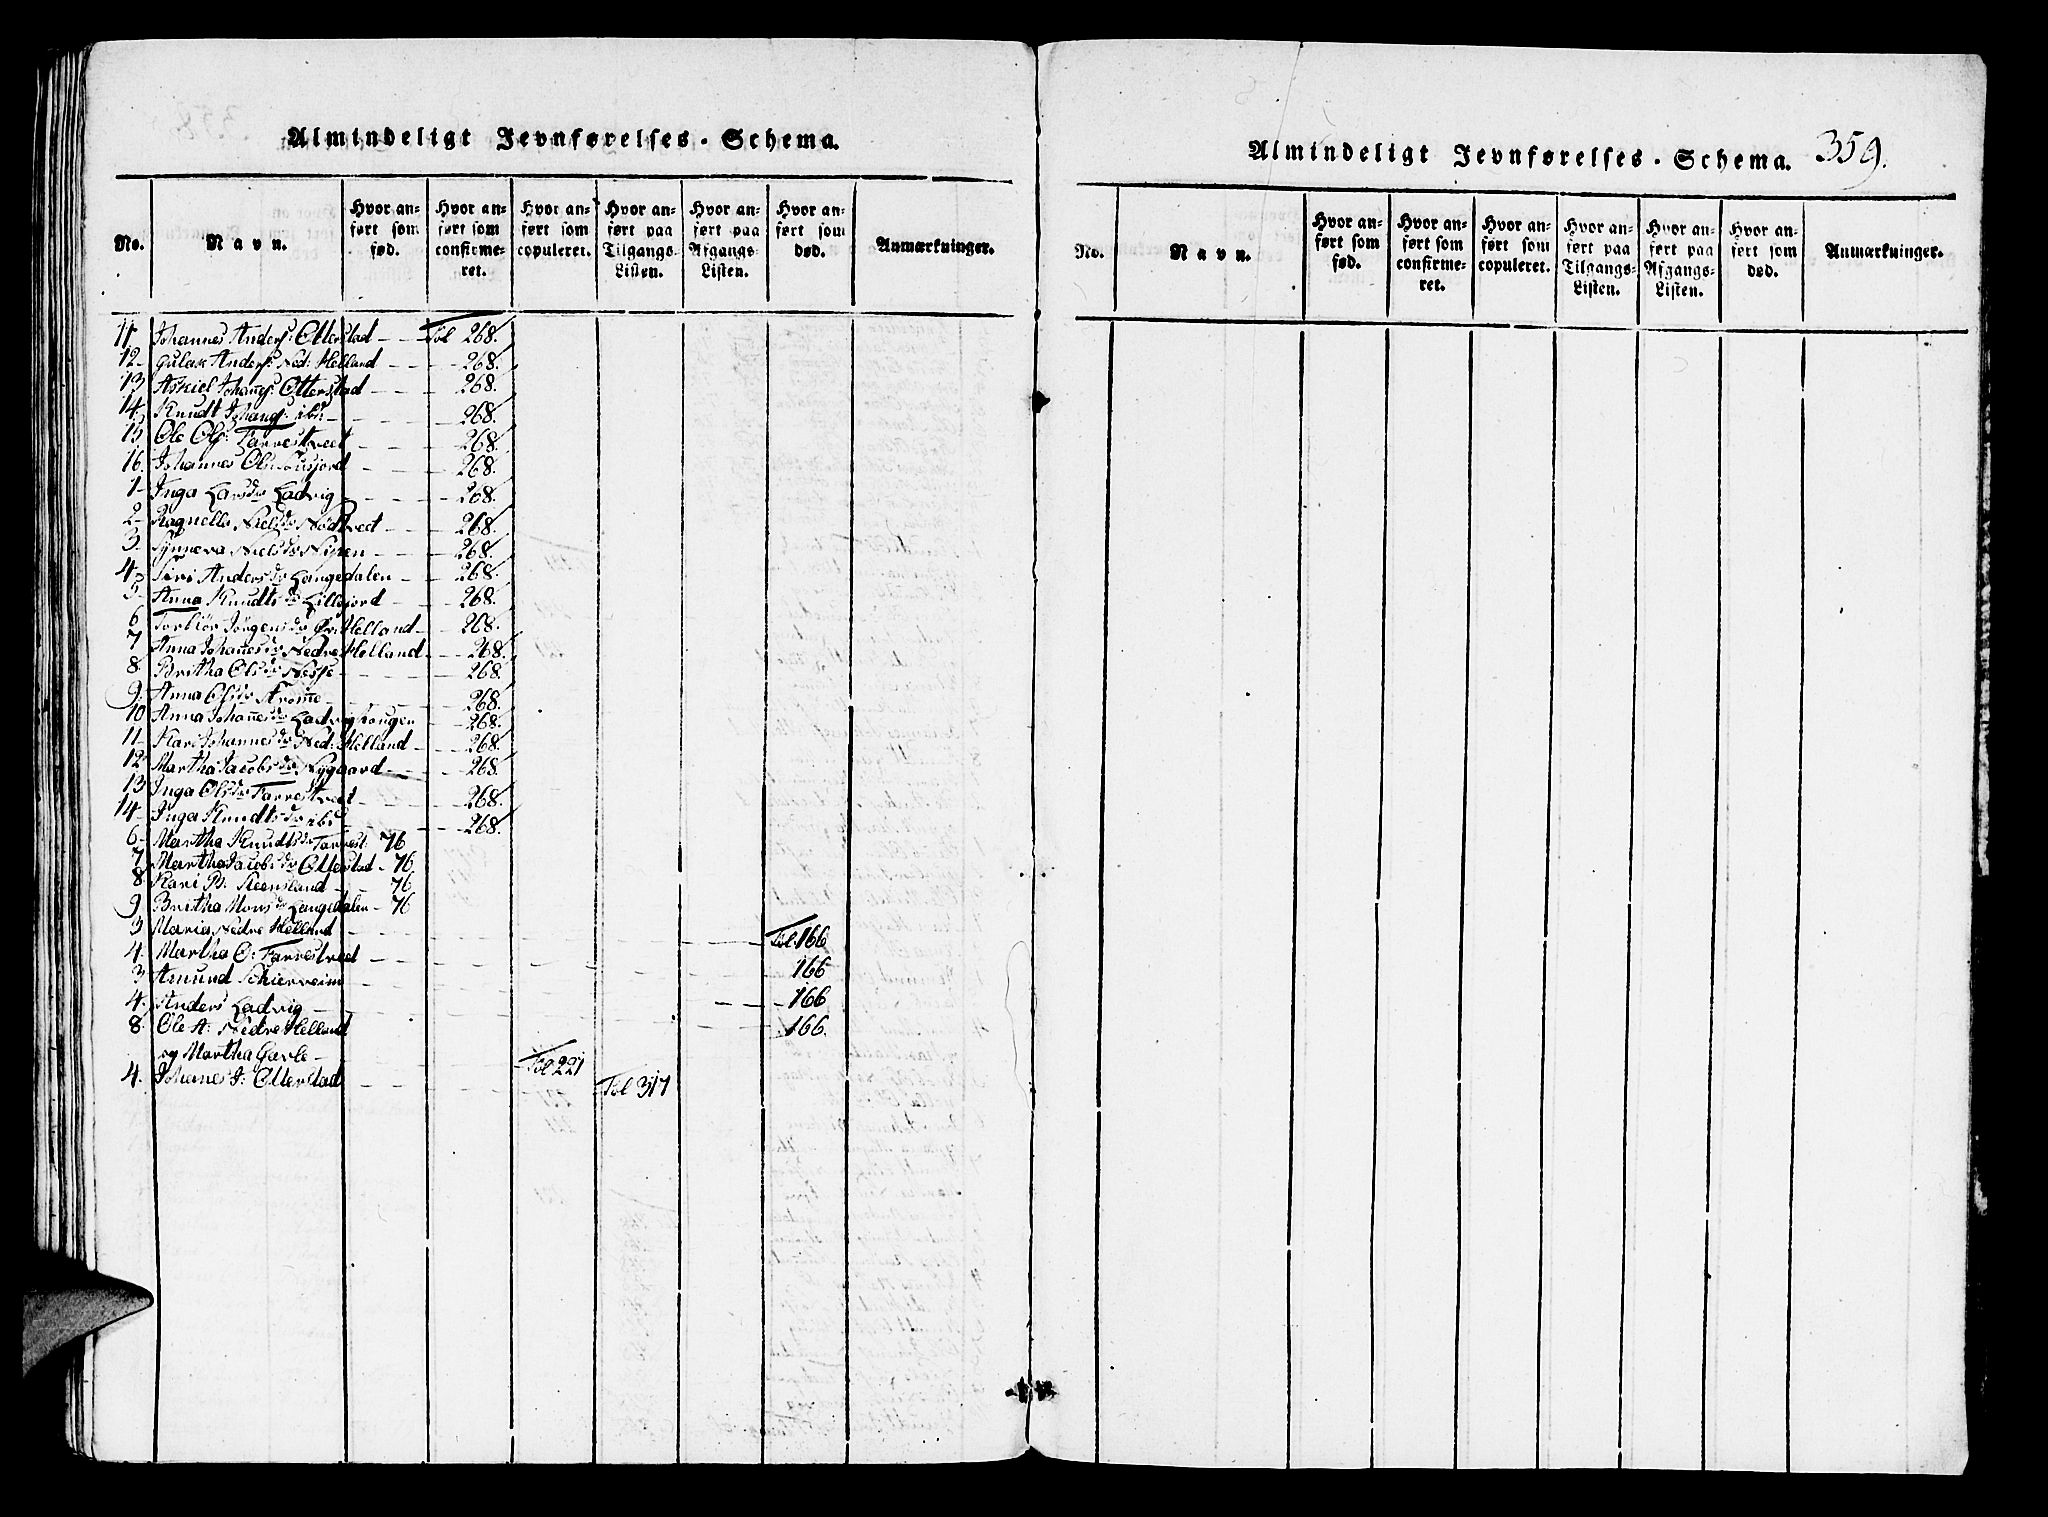 Almindeligt Jevnførelses-Schema.
No. Navn. Hvor anført som fød. Hvor anført som confirmeret. Hvor anført som copuleret. Hvor anført paa Tilgangs-Listen. Hvor anført paa Afgangs-Listen. Hvor anført som død. Anmærkninger.
11 Johannes Anders: Otterstad Fol 268.
12 Gulak Anders: Ned: Helland 268.
13 Askiel Johanns: Otterstad 268.
14 Knudt Johans: ibd 268.
15 Ole Ols: Farrestvect 268.
16 Johannes Ols: 268.
1 Inga Larsdr Ladvig 268.
2 Ragnella Nielsdr 268.
3 Synneva Nielsdr Nipen 268.
4 Siri Andersdr Langedalen 268.
5 Anna Knudtsdr Lillejord 268.
6 Torbiør Jørgensdr Øv: Helland 268.
7 Anna Johanesdr Nedre Helland 268.
8 Britha Olsdr Nesse 268.
9 Anna Olsdr Kromme 268.
10 Anna Johannesdr Ladvighougen 268.
11 Kari Johannesdr Ned: Helland 268.
12 Martha Jacobsdr Nygaard 268.
13 Inga Olsdr Farrestvect 268.
14 Inga Knudtsdr ibd 268.
6 Martha Knudtsdr Farrest: 76
7 Martha Jacobsdr Otterstad 76
8 Kari B: Steensland 76
9 Britha Monsdr Langedalen 76
3 Maria Nedre Helland Fol. 166
4. Martha O: Farrestved 166
3 Amund Schierveim 166
4. Anders Ladvig 166.
8. Ole A: Nedre Helland
og Martha Garle Fol 221
4. Johanes J: Otterstad Fol 317
Almindeligt Jevnførelses-Schema. 359.
No. Navn. Hvor anført som fød. Hvor anført som confirmeret. Hvor anført som copuleret. Hvor anført paa Tilgangs-Listen. Hvor anført paa Afgangs-Listen. Hvor anført som død. Anmærkninger.